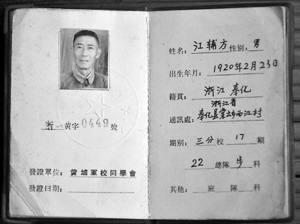 浙一黃字0449號
發證單位：黃埔軍校同學會
發證日期：
姓名：江輔方 性別：男
出生年月：1920年2月23日
籍貫：浙江 奉化
浙江省
通訊處：奉化县棠岙乡西江村
期別：三分校 17 期
22 總隊 步 科
其他： 班 隊 科